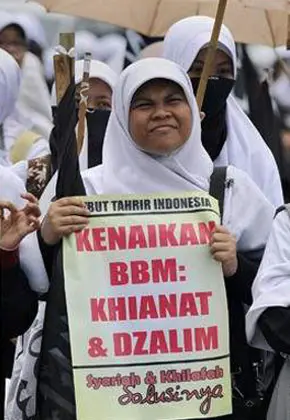 BUT TAHRIR INDONESIA
KENAIKAN
BBM:
KHIANAT
& DZALIM
Syariah & Khilafah
Solusi nya